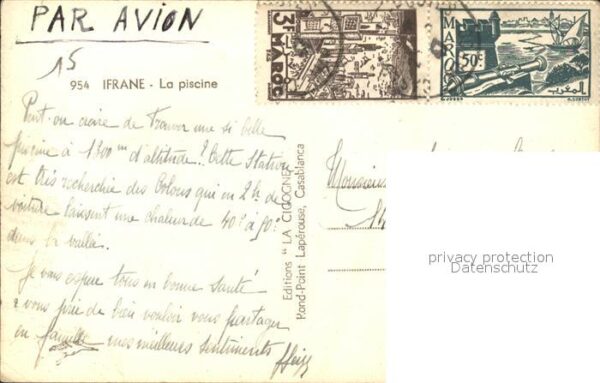 PAR AVION
15
954 IFRANE - La piscine
Peut-on croire de trouver une si belle
piscine à 1800m d'altitude? Cette Station
est très recherchée des Colons qui en 2h. de
voiture laissent une chaleur de 40° à 50°
dans la vallée.
Je vous espère tous en bonne santé
& vous prie de bien vouloir vous partager
en famille mes meilleurs sentiments
Editions " LA CIGOGNE "
Rond-Point Lapérouse, Casablanca
3F
MAROC
MAROC
50c
المغرب
Monsieur
privacy protection
Datenschutz